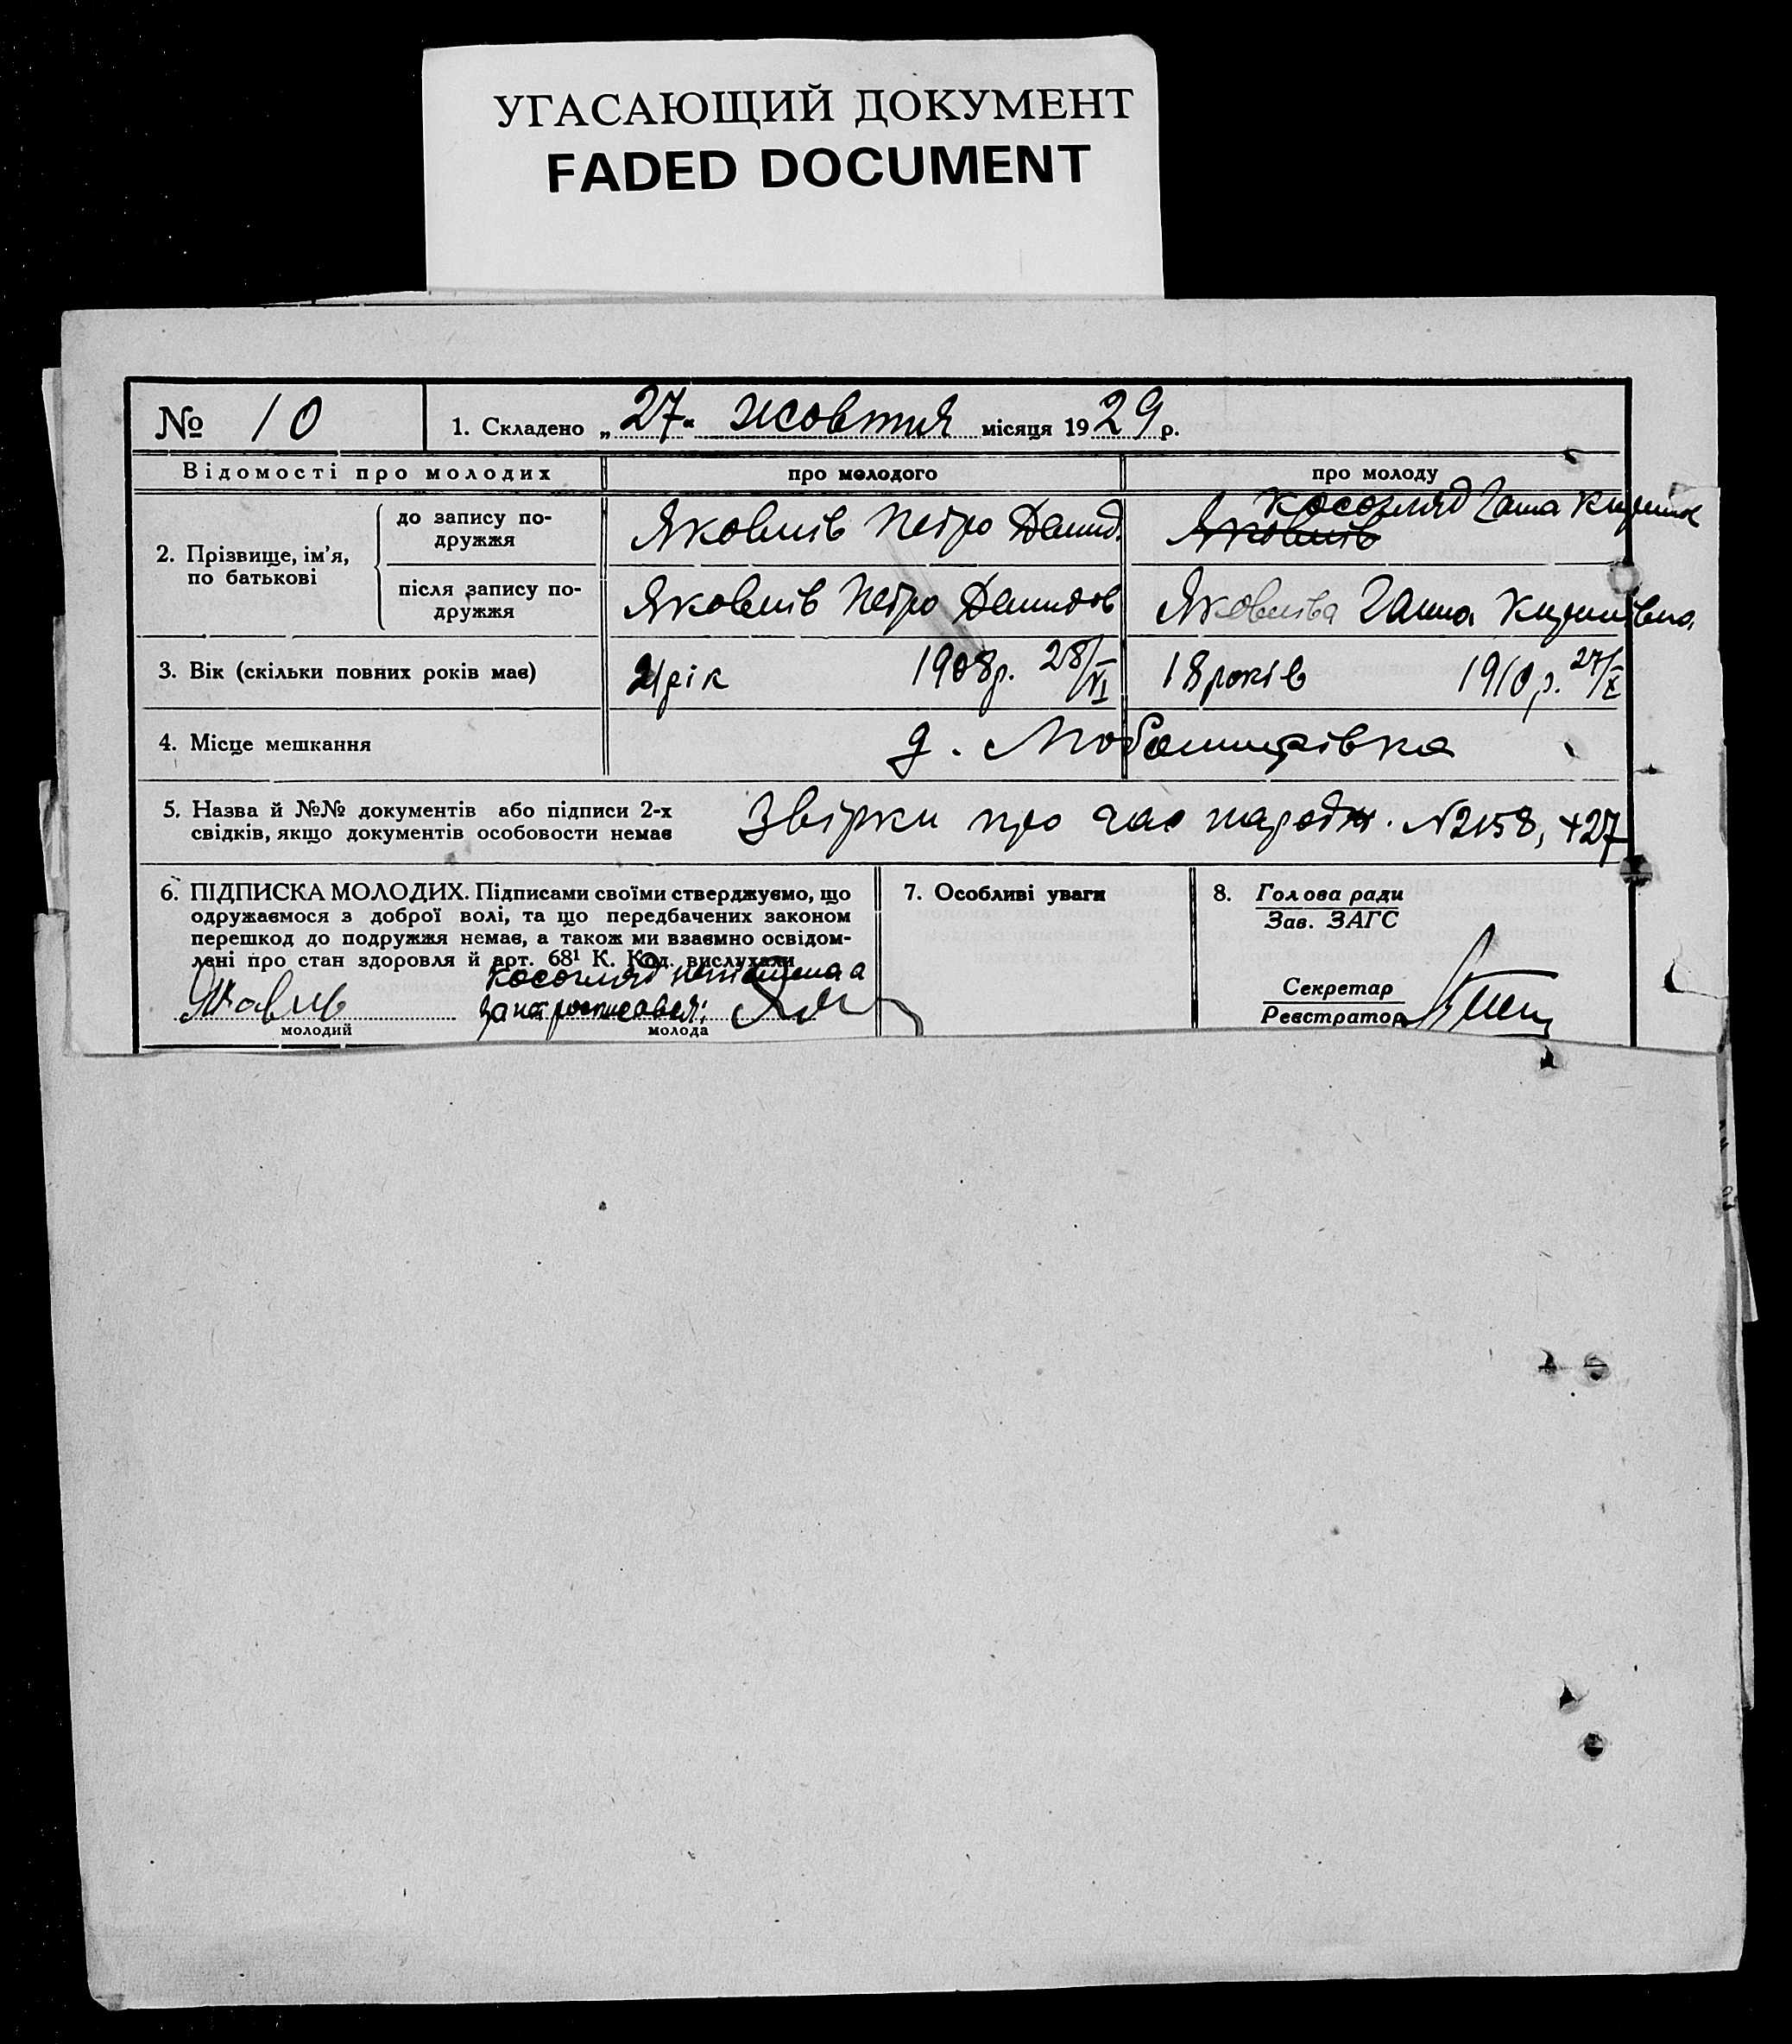 УГАСАЮЩИЙ ДОКУМЕНТ
FADED DOCUMENT
№ 10
1. Складено „27" жовтня місяця 1929 р.
Відомості про молодих
про молодого
про молоду
2. Прізвище, ім'я, по батькові
до запису по-
дружжя
Яковлів Петро Демид.
Косогляд Ганна
Яковлів
після запису по-
дружжя
Яковлів Петро Демидов
Яковліва Ганна
3. Вік (скільки повних років має)
21 рік 1908 р. 28/VI
18 років 1910 р. 27/X
4. Місце мешкання
5. Назва й №№ документів або підписи 2-х
свідків, якщо документів особовости немає
Звірки про час народж. №2158, 427
6. ПІДПИСКА МОЛОДИХ. Підписами своїми стверджуємо, що
одружаємося з доброї волі, та що передбачених законом
перешкод до подружжя немає, а також ми взаємно освідом-
лені про стан здоровля й арт. 68¹ К. Код. вислухали
Косогляд неписьменна
за неї росписався:
молодий
молода
7. Особливі уваги
8. Голова ради
Зав. ЗАГС
Секретар
Реєстратор